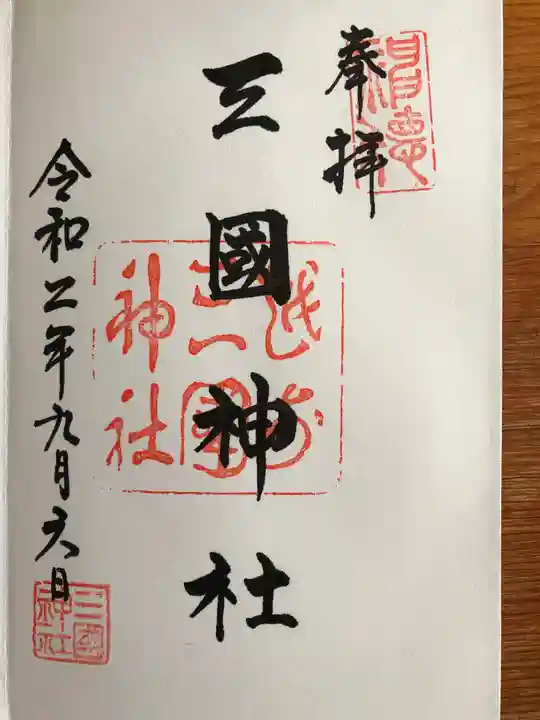 奉拝
三國神社
令和二年九月六日
越前
三國
神社
三國
神社